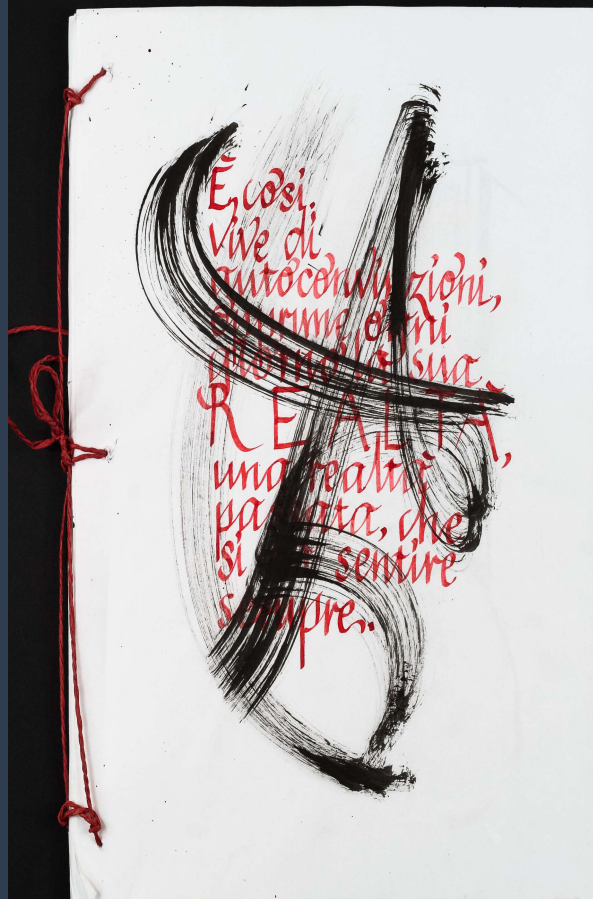 È così.
vive di
autoconvinzioni,
ogni
giorno la sua
REALTÀ,
una realtà
passata, che
si sentire
sempre.